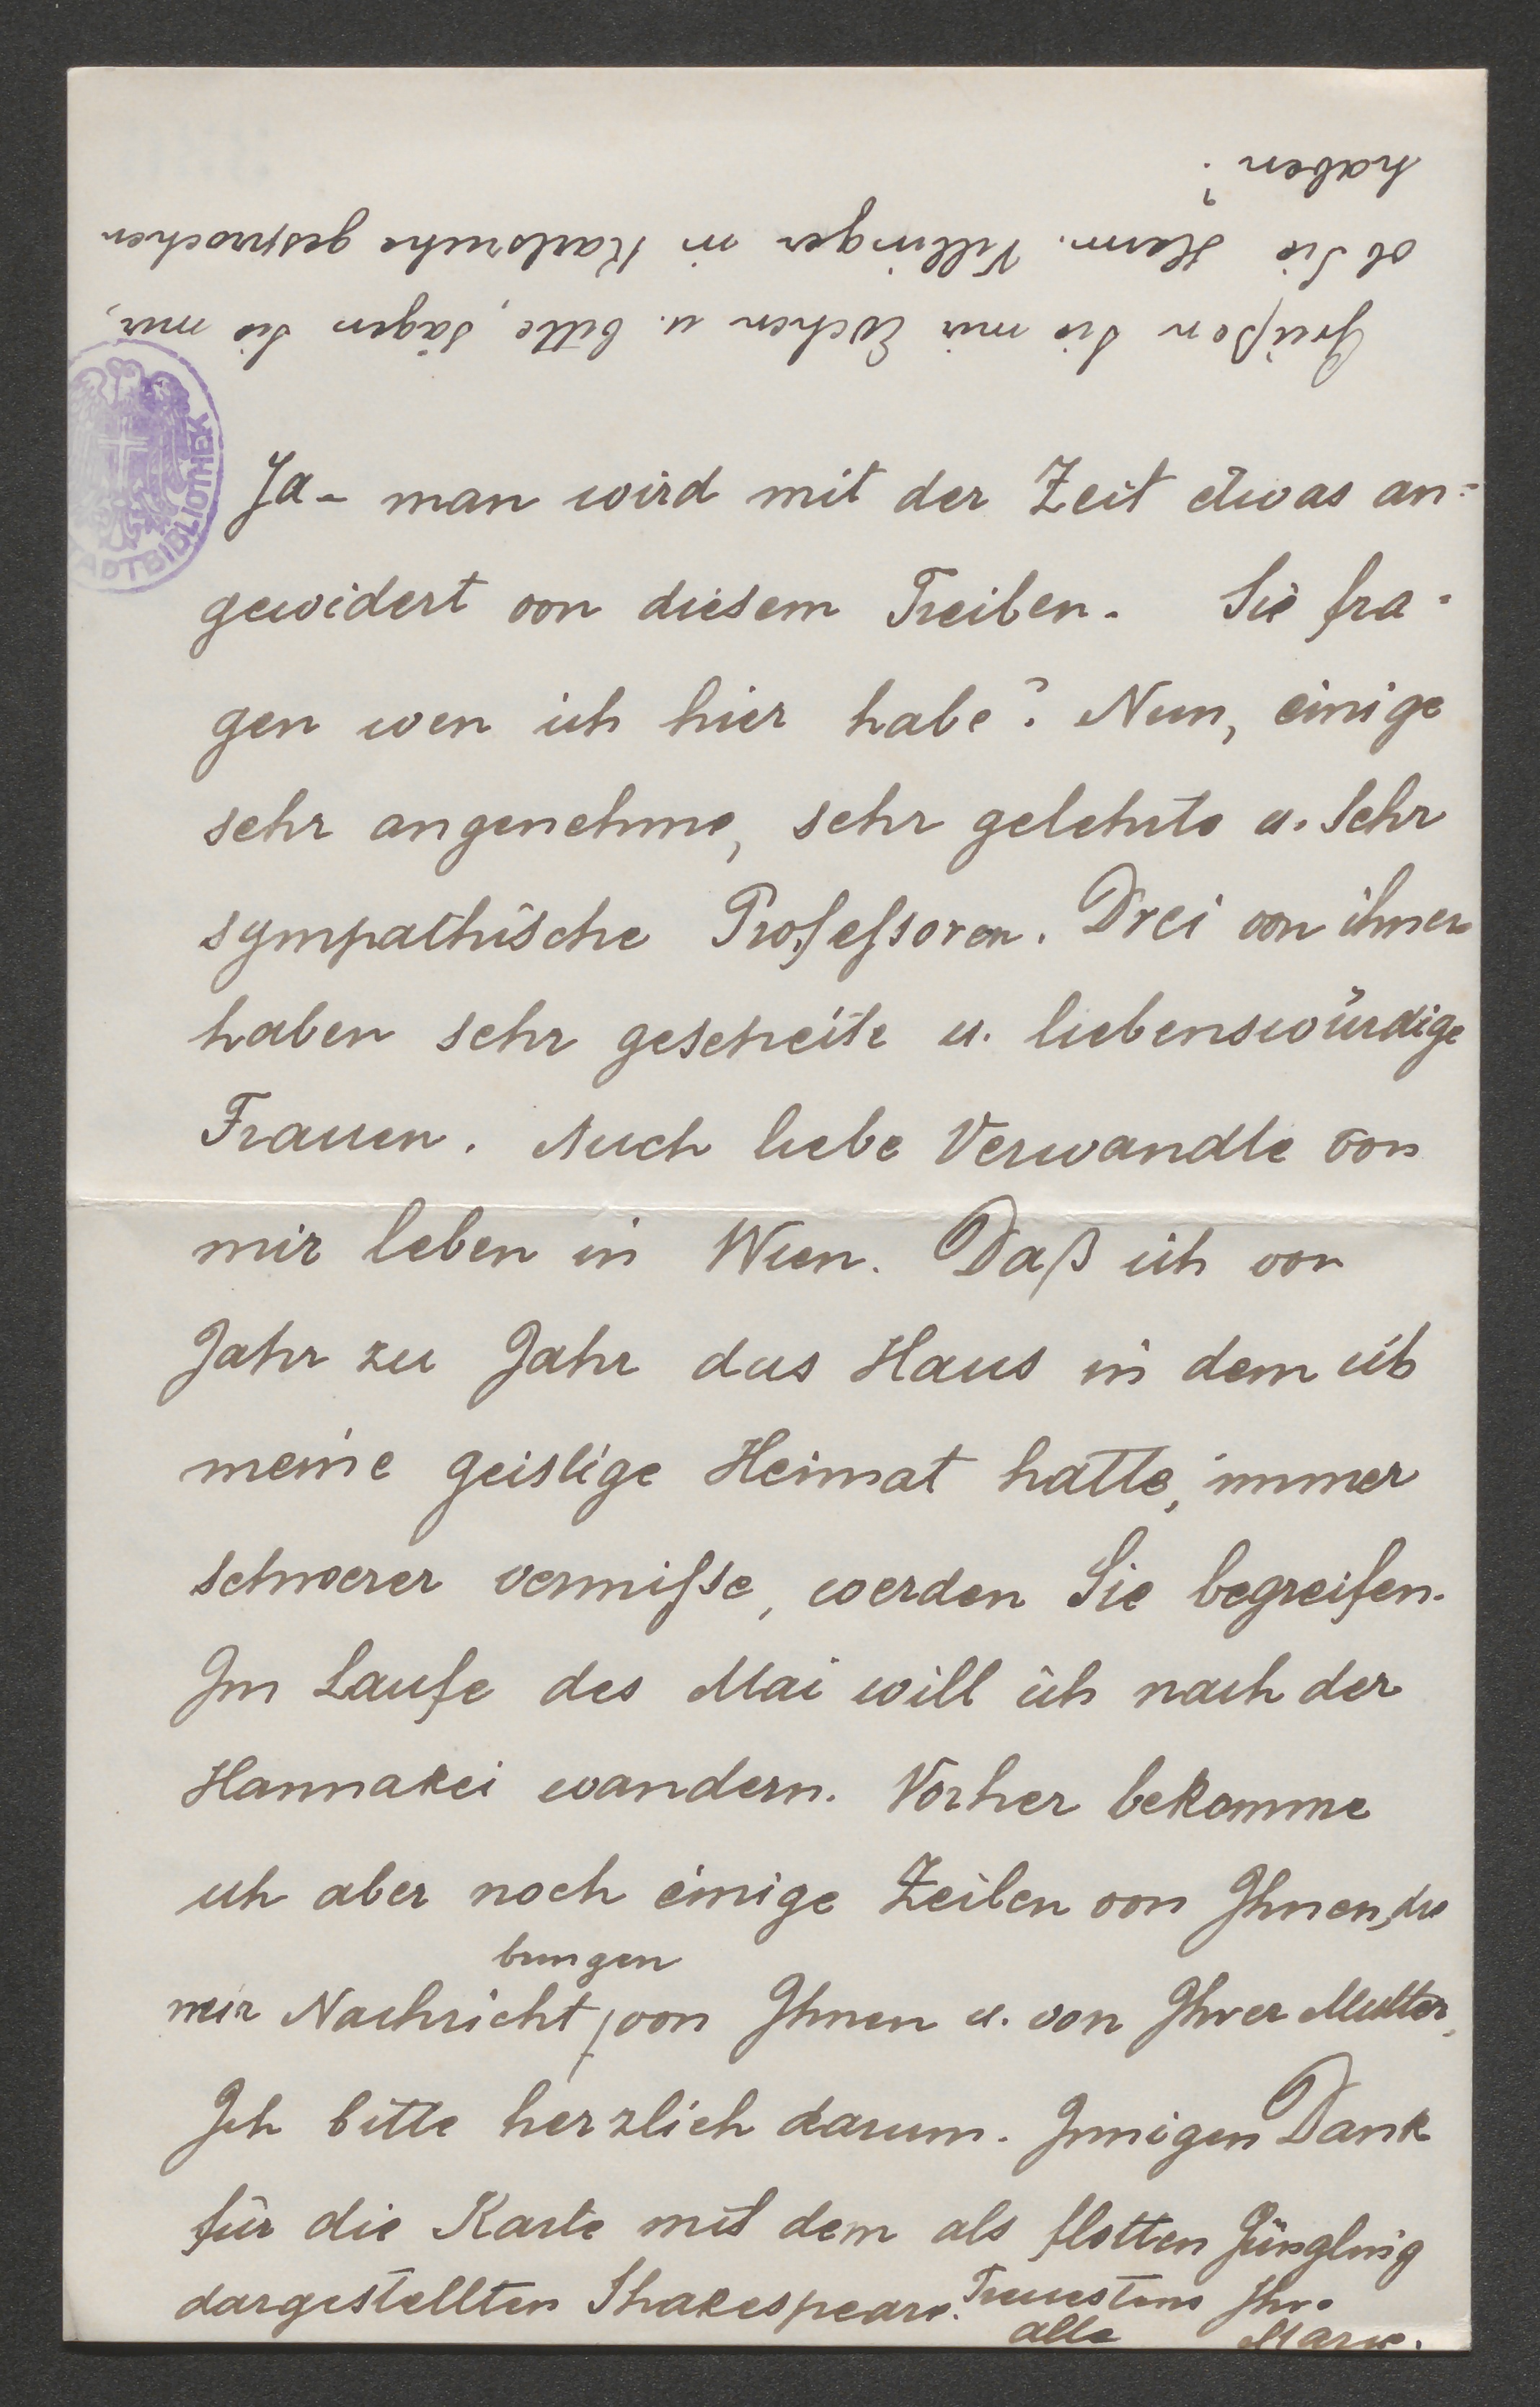 Ja – man wird mit der Zeit etwas an=
gewidert von diesem Treiben. Sie fra=
gen wen ich hier habe? Nun, einige
sehr angenehme, sehr gelehrte u. sehr
sympathische Professoren. Drei von ihnen
haben sehr gescheite u. liebenswürdige
Frauen. Auch liebe Verwandte von
mir leben in Wien. Daß ich von
Jahr zu Jahr das Haus in dem ich
meine geistige Heimat hatte, immer
schwerer vermisse, werden Sie begreifen.
Im Laufe des Mai will ich nach der
Hannakei wandern. Vorher bekomme
ich aber noch einige Zeilen von Ihnen, die
bringen
mir Nachricht von Ihnen u. von Ihrer Mutter.
Ich bitte herzlich darum. Innigen Dank
für die Karte mit dem als flotten Jüngling
dargestellten Shakespeare. Treuestens Ihre
alte Marie.
Grüßen Sie mir Evchen u. bitte, sagen Sie mir,
ob Sie Herm. Villinger in Karlsruhe gesprochen
haben?
STADTBIBLIOTHEK